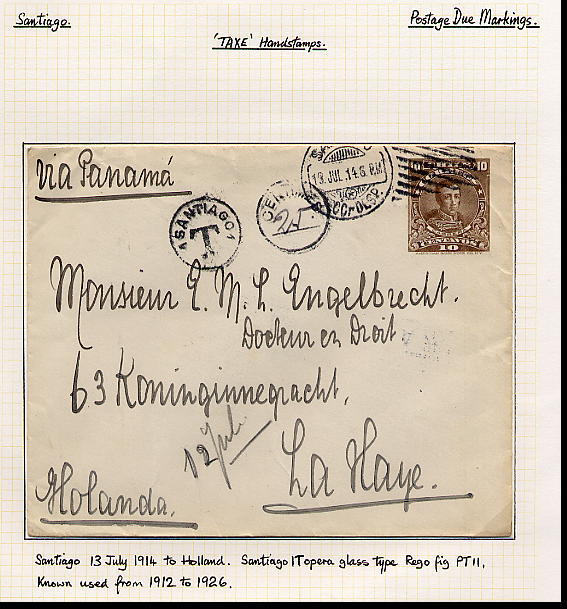 Santiago.
Postage Due Markings.
'TAXE' Handstamps.
via Panamá
SANTIAGO
T
CENT
25
13 JUL 14 6 P.M
10 10
CENTAVOS
10
Monsieur E. M. L. Engelbrecht.
Docteur en Droit
63 Koninginnegracht,
12 Juli
La Haye.
Holanda.
Santiago 13 July 1914 to Holland. Santiago/T opera glass type Rego fig PT11.
Known used from 1912 to 1926.